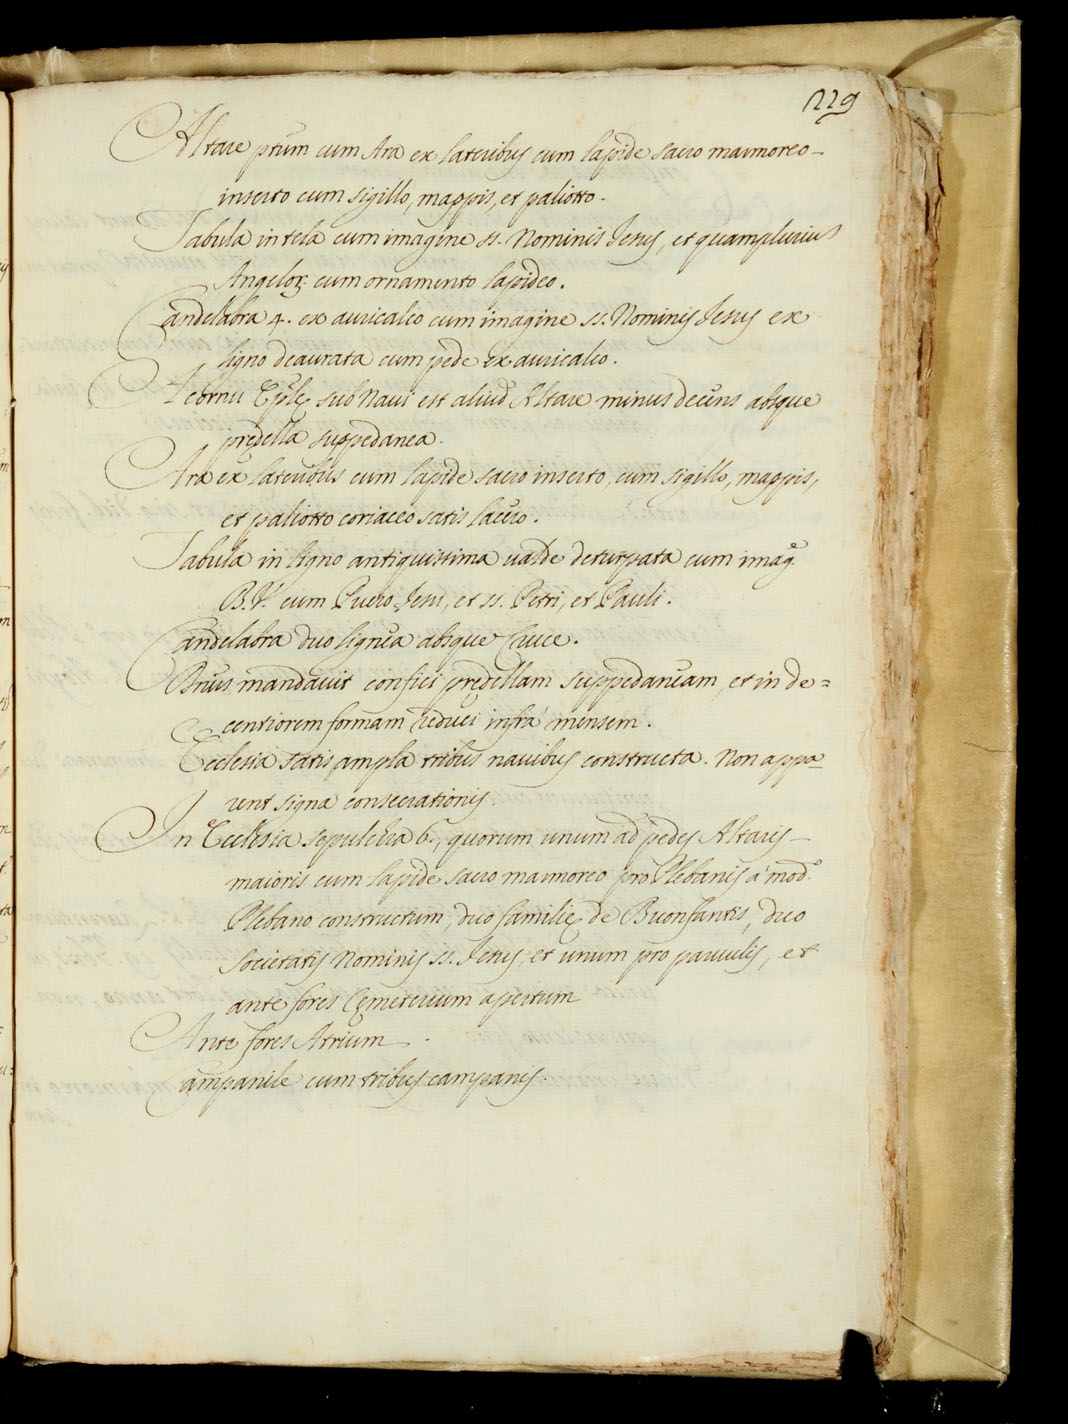 229
Altare ptum cum Ara ex lateribus cum lapide sacro marmoreo
inserto cum sigillo, mappis, et paliotto.
Tabula in tela cum imagine ss. Nominis Iesus, et quamplurius
Angeloꝝ cum ornamento lapideo.
Candelabra 4. ex auricalco cum imagine ss. Nominis Iesus ex
ligno deaurata cum pede ex auricalco.
A Cornu Eplę sub Navi est aliud Altare minus decens absque
predella suppedanea.
Ara ex lateribus cum lapide sacro inserto, cum sigillo, mappis,
et paliotto coriaceo satis lacero.
Tabula in ligno antiquissima valde deturpata cum imagᵉ
B. V. cum Puero Iesu, et ss. Petri, et Pauli.
Candelabra duo lignea absque Cruce.
mandavit confici predellam suppedaneam, et in de=
centiorem formam reduci infrà mensem.
Ecclesia satis ampla tribus navibus constructa. Non appa-
rent signa consecrationis.
In Ecclesia sepulchra 6., quorum unum ad pedes Altaris
maioris cum lapide sacro marmoreo pro Plebanis à modᵒ
Plebano constructum, duo familię de Buonfantis, duo
societatis Nominis ss. Iesus, et unum pro parvulis, et
ante fores Cęmeterium apertum
Ante fores Atrium.
Campanile cum tribus campanis.